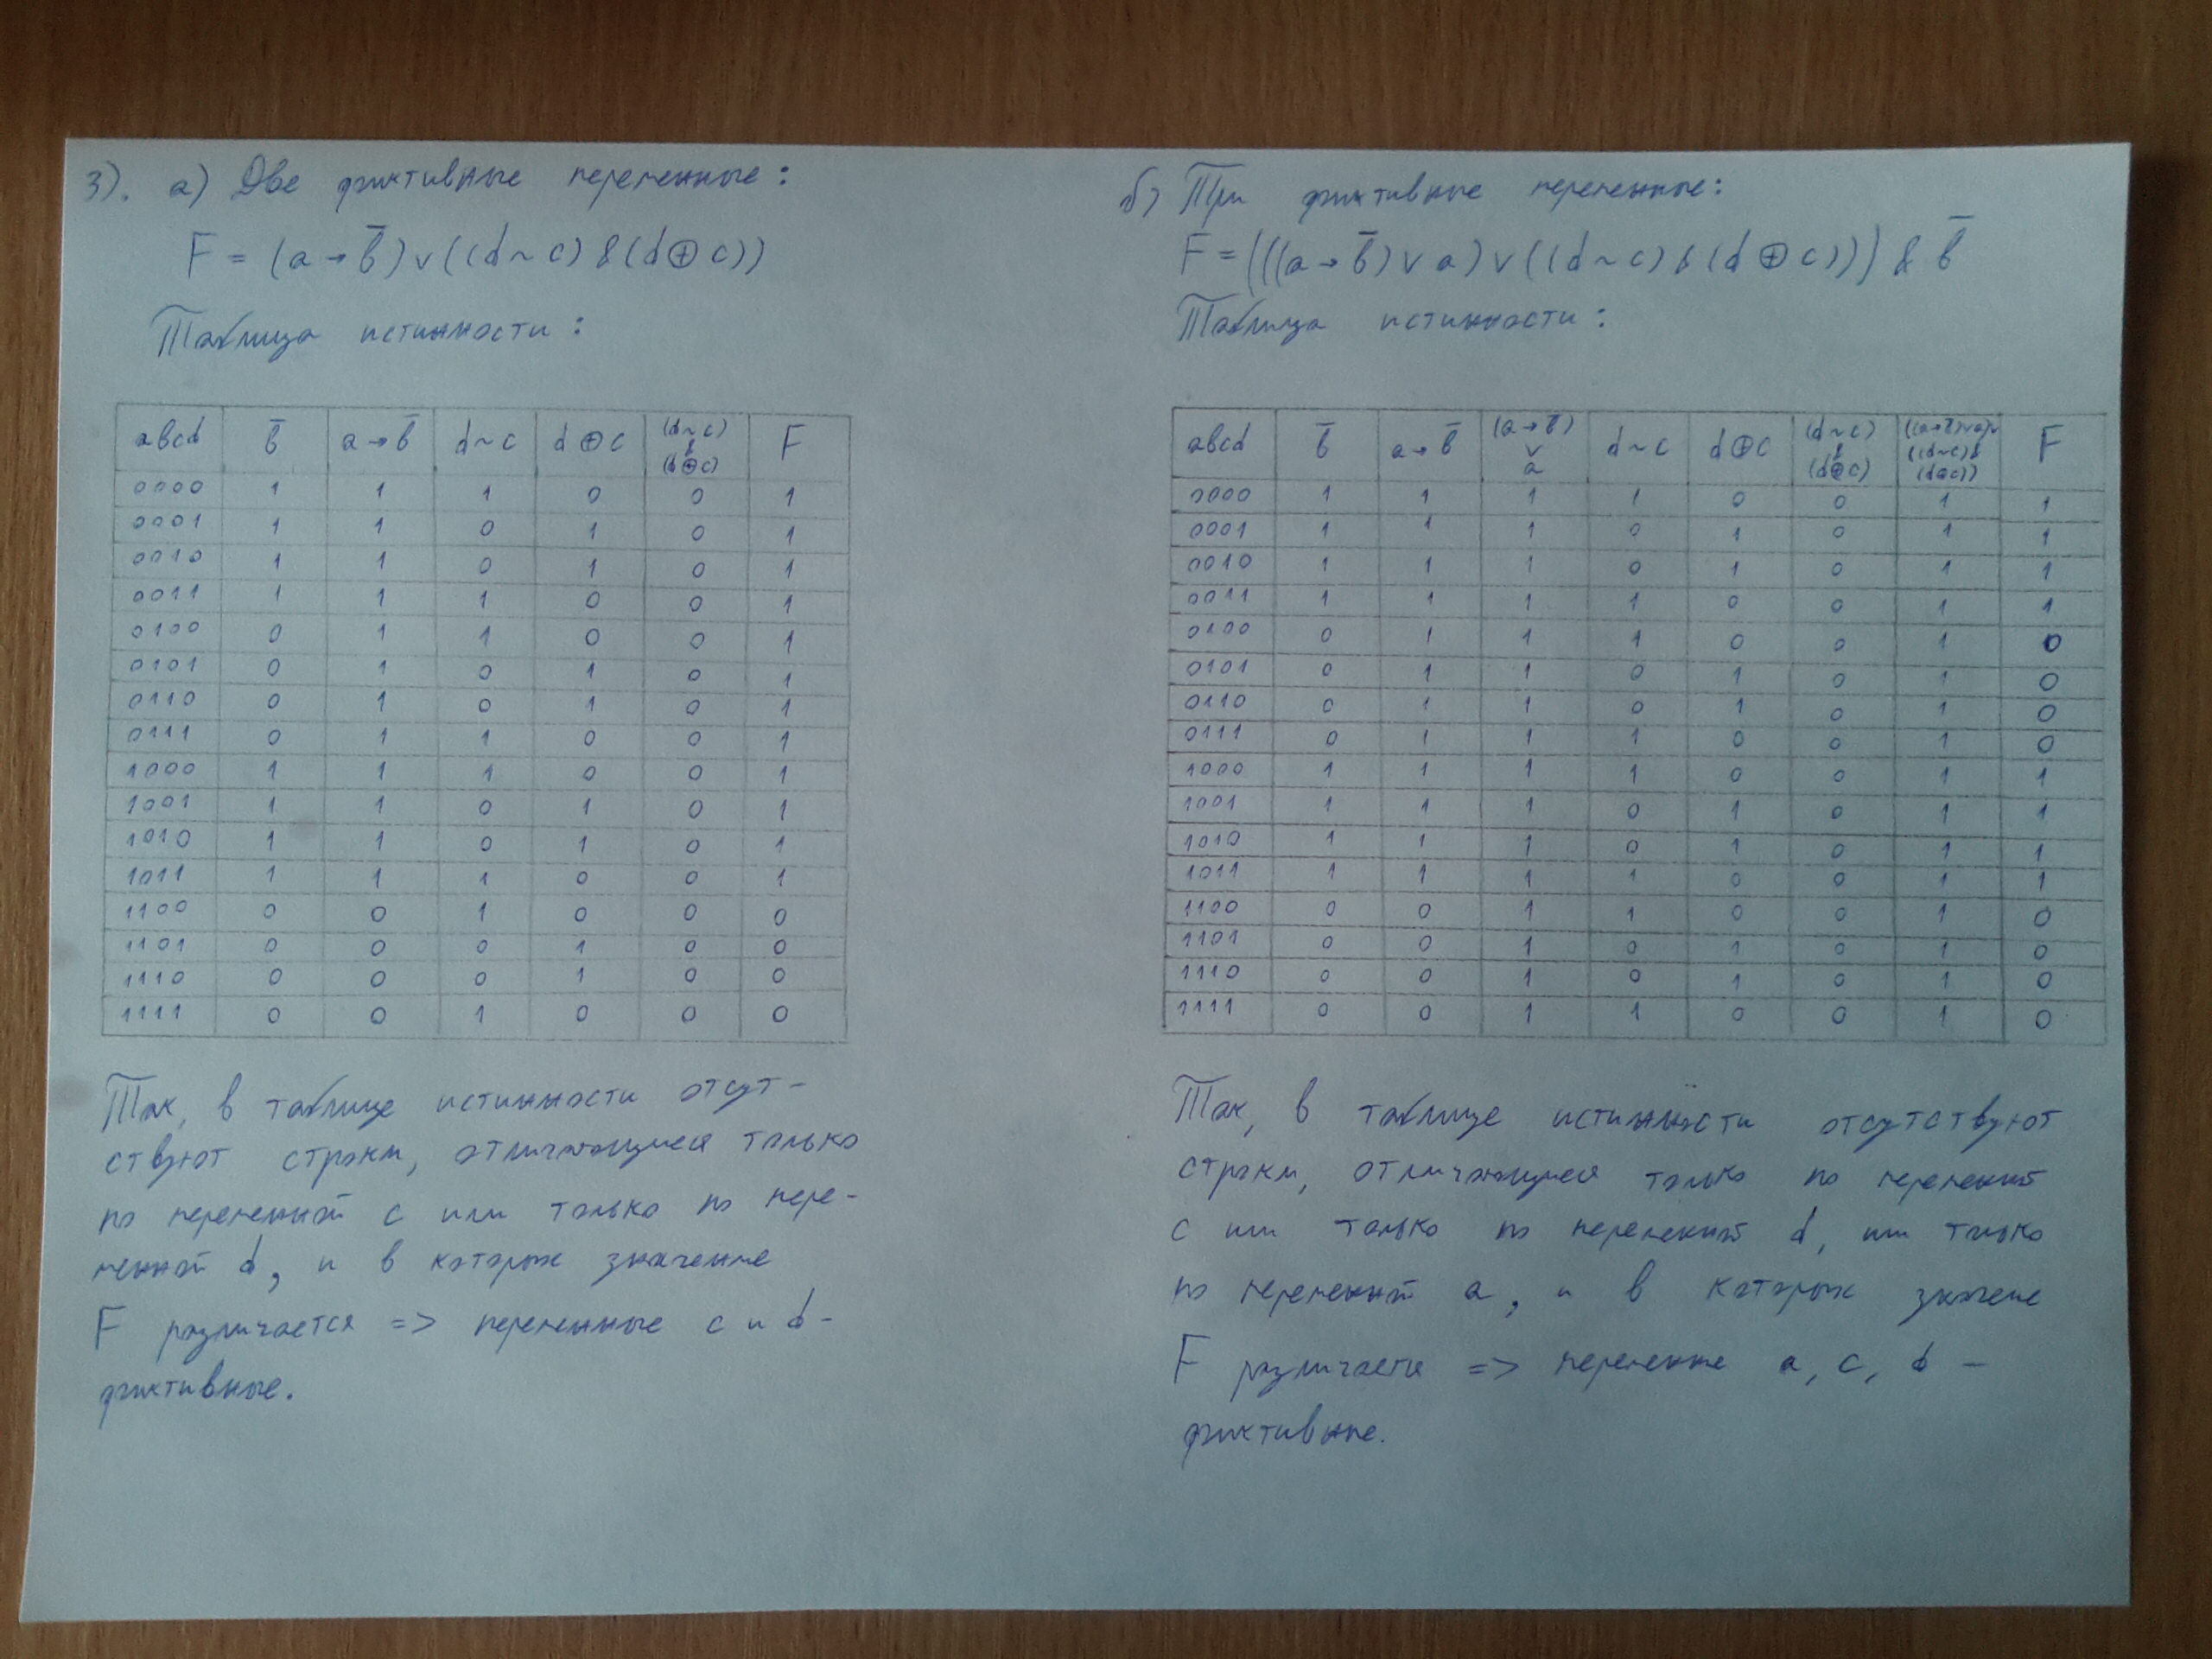 3). а) Две фиктивные переменные:
F = (a → b̄) ∨ ((d ~ c) & (d ⊕ c))
Таблица истинности:
abcd b̄ a→b̄ d~c d⊕c (d~c) & (d⊕c) F
0000 1 1 1 0 0 1
0001 1 1 0 1 0 1
0010 1 1 0 1 0 1
0011 1 1 1 0 0 1
0100 0 1 1 0 0 1
0101 0 1 0 1 0 1
0110 0 1 0 1 0 1
0111 0 1 1 0 0 1
1000 1 1 1 0 0 1
1001 1 1 0 1 0 1
1010 1 1 0 1 0 1
1011 1 1 1 0 0 1
1100 0 0 1 0 0 0
1101 0 0 0 1 0 0
1110 0 0 0 1 0 0
1111 0 0 1 0 0 0
Так, в таблице истинности отсут-
ствуют строки, отличающиеся только
по переменной c или только по пере-
менной d, и в которых значение
F различается => переменные c и d -
фиктивные.
б) Три фиктивные переменные:
F = (((a → b̄) ∨ a) ∨ ((d ~ c) & (d ⊕ c))) & b̄
Таблица истинности:
abcd b̄ a→b̄ (a→b̄) ∨ a d~c d⊕c (d~c) & (d⊕c) ((a→b̄)∨a)∨ ((d~c)& (d⊕c)) F
0000 1 1 1 1 0 0 1 1
0001 1 1 1 0 1 0 1 1
0010 1 1 1 0 1 0 1 1
0011 1 1 1 1 0 0 1 1
0100 0 1 1 1 0 0 1 0
0101 0 1 1 0 1 0 1 0
0110 0 1 1 0 1 0 1 0
0111 0 1 1 1 0 0 1 0
1000 1 1 1 1 0 0 1 1
1001 1 1 1 0 1 0 1 1
1010 1 1 1 0 1 0 1 1
1011 1 1 1 1 0 0 1 1
1100 0 0 1 1 0 0 1 0
1101 0 0 1 0 1 0 1 0
1110 0 0 1 0 1 0 1 0
1111 0 0 1 1 0 0 1 0
Так, в таблице истинности отсутствуют
строки, отличающиеся только по переменной
c или только по переменной d, или только
по переменной a, и в которых значение
F различается => переменные a, c, d -
фиктивные.